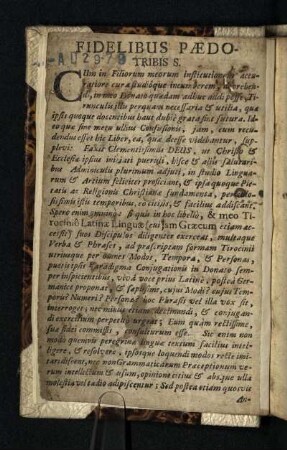 FIDELIBUS PÆDO-
TRIBIS S.
CUm in Filiorum meorum institutione accu-
ratiore cura studióque incumberem, deprehen-
di, in meo Donato quædam adhuc addi posse, Ti-
runculis istis perquam necessaria & utilia, quæ
ipse quoque docentibus haut dubiè grata sint futura.
Ideo quæ sint metu ullius Confusionis, jam, cum recu-
dendus esset hic Liber, ea, quæ deesse videbantur, sup-
plevi. Faxit Clementissimus DEUS, ut Christo &
Ecclesiæ ipsius initiati pueruli, hisce & aliis
Adminiculis plurimum adjuti, in studio Linguæ-
rum & Artium feliciter proficiant, & ipsa quoque Pie-
tatis ac Religionis Christianæ fundamenta,
istis temporibus, rectiùs, & faciliùs addiscant.
Spero enim omnino, si quis in hoc libellô, & meo Ti-
rociniô Latinæ Linguæ (seu jam Græcum etiam ac-
cesserit) suos Discipulos diligenter exerceat, multaque
Verba & Phrases, ad præscriptam formam Tirocinii
utrinque per omnes Modos, Tempora, & Personas,
pueris ipsis Paradigma Conjugationis in Donato sem-
per inspicientibus, vivâ voce prius Latinè, posteà Ger-
manicè proponat, & sæpissimè, cujus Modi? cujus Tem-
poris? Numeri? Personæ? hæc Phrasis vel illa vox sit,
interroget; nec minus etiam declinandi, & conjugan-
di exercitium perpetuò urgeat; Eum quàm rectissimè,
suæ fidei commissis, consulturum esse. Sic enim non
modò quemvis peregrinæ linguæ textum faciliùs intel-
ligere, & resolvere, ipsosque loquendi modos rectè imi-
tari discent, nec non Grammaticarum Præceptionum ve-
rum intellectum & usum, opinione citiùs & absque ulla
molestia vel tædio adipiscentur; Sed postea etiam quævis